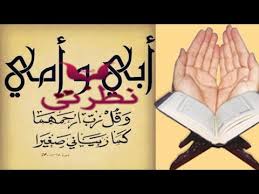 أبي وأمي
نظرتى
وَقُل رَّبِّ ارْحَمْهُمَا
كَمَا رَبَّيَانِي صَغِيرًا